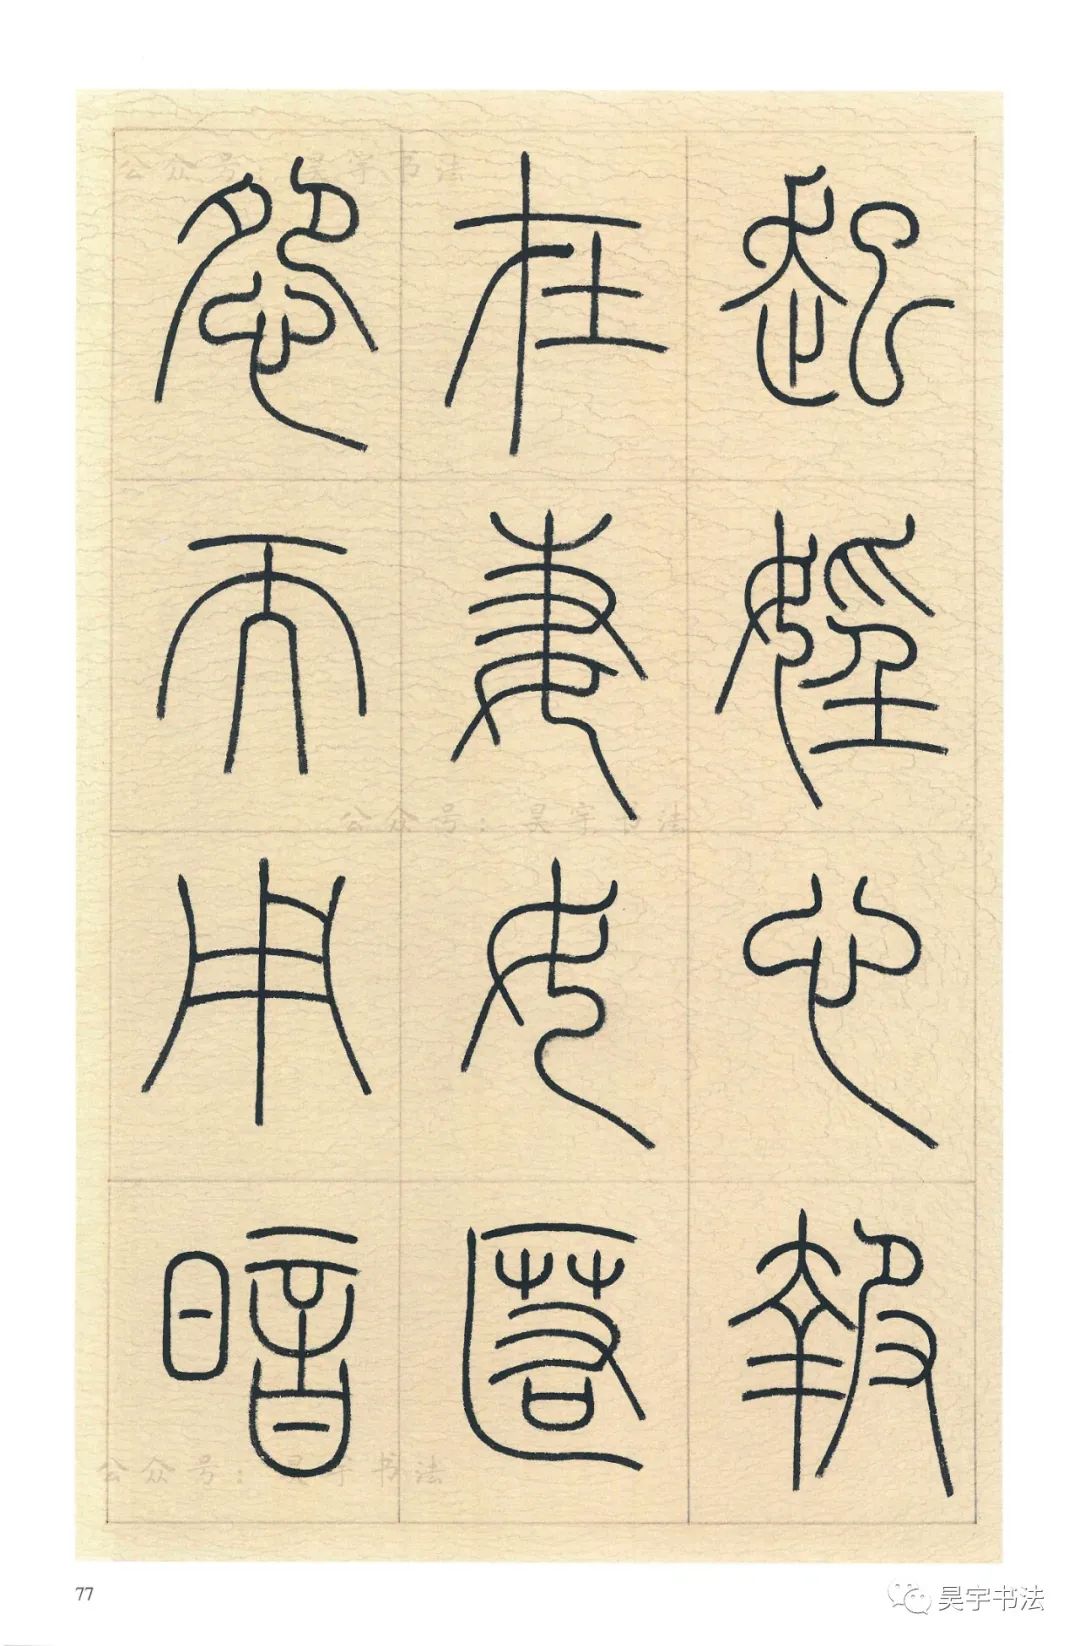 起婬心報
在妻女匿
怨而用暗
公众号：昊宇书法
公众号：昊宇书法
公众号：昊宇书法
77
昊宇书法